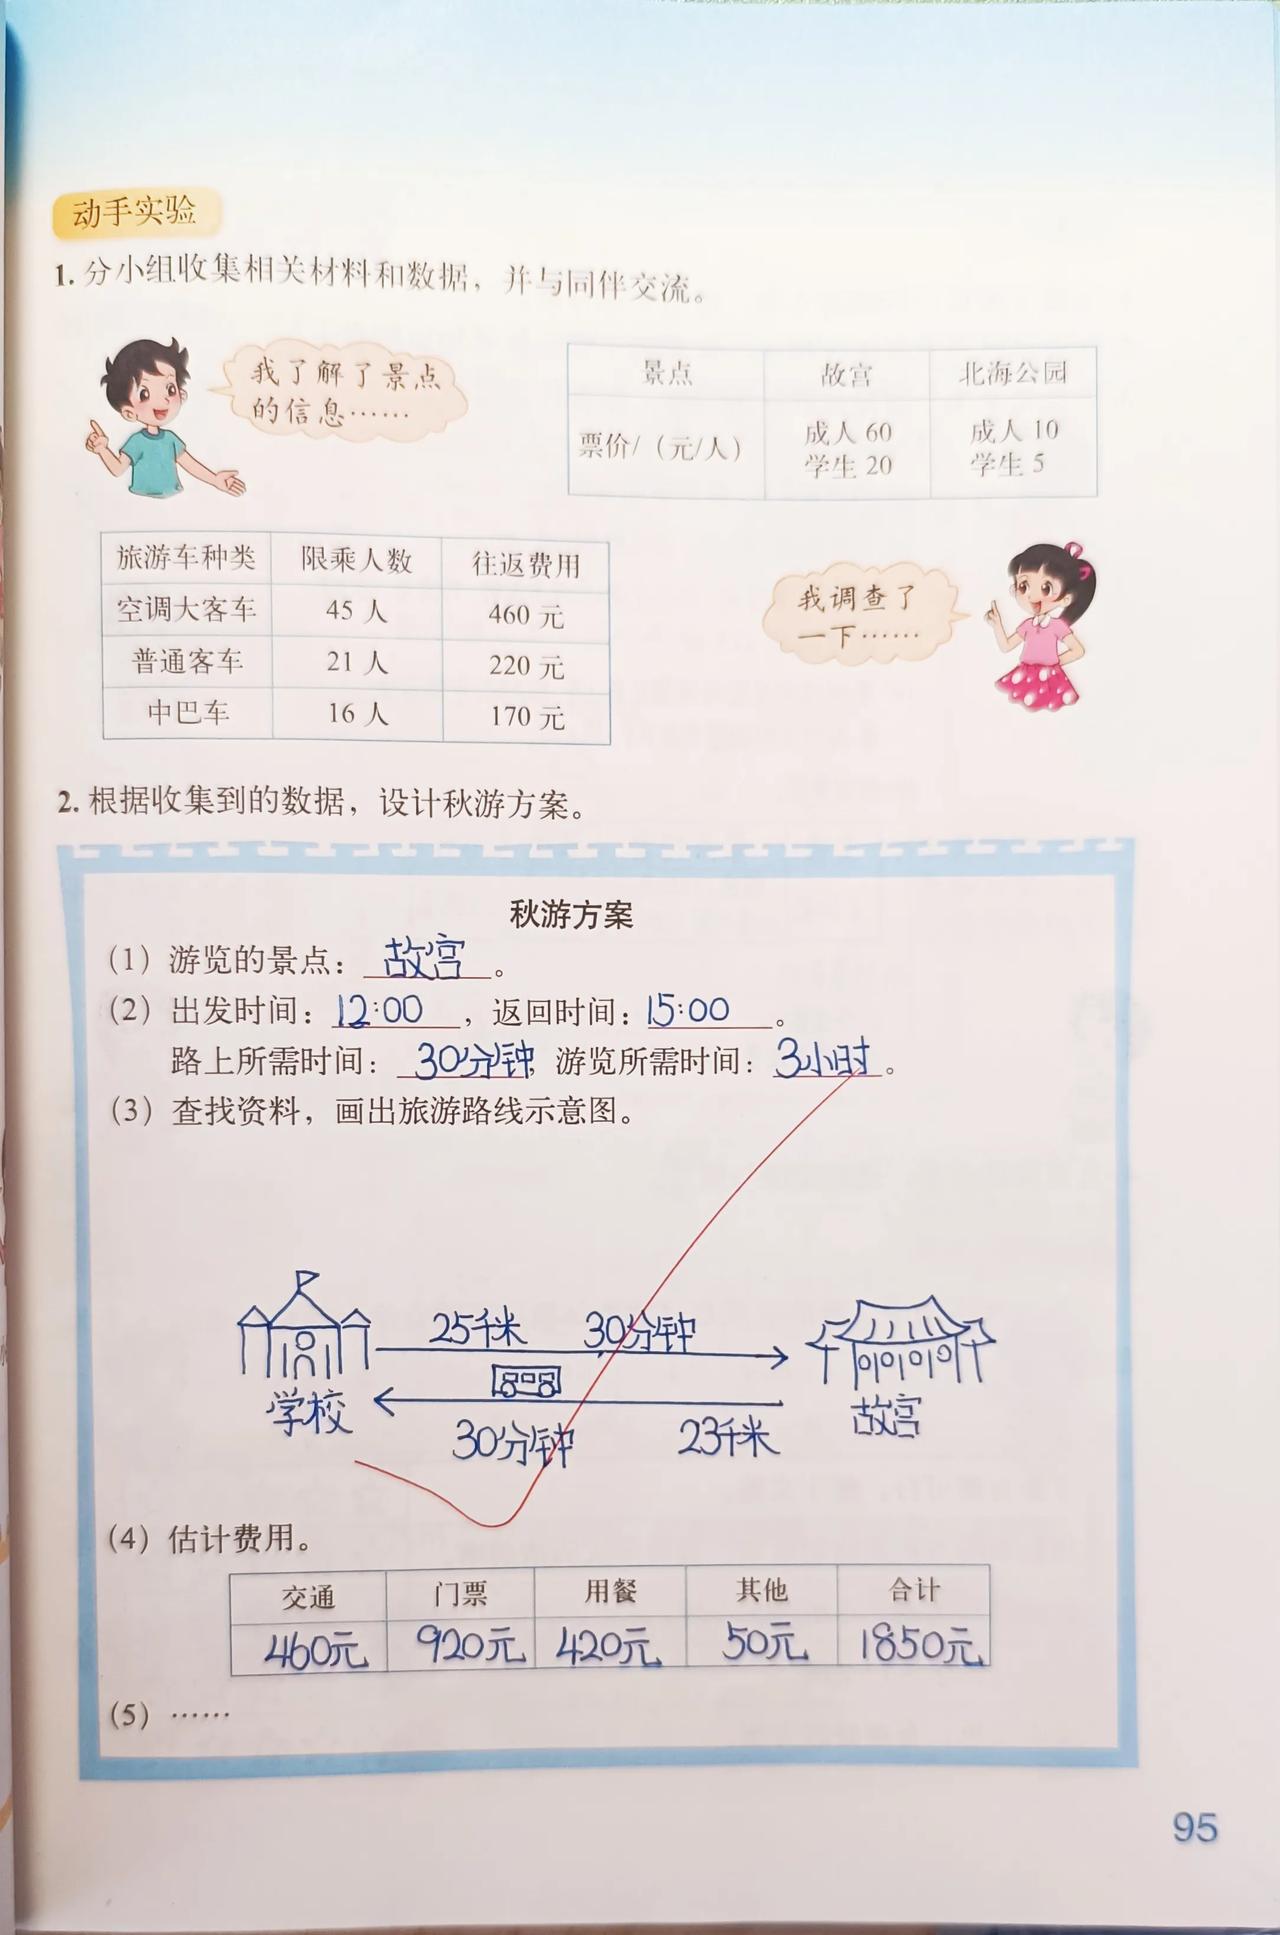 动手实验
1. 分小组收集相关材料和数据，并与同伴交流。
我了解了景点
的信息……
景点 故宫 北海公园
票价/（元/人） 成人 60 学生 20 成人 10 学生 5
旅游车种类 限乘人数 往返费用
空调大客车 45 人 460 元
普通客车 21 人 220 元
中巴车 16 人 170 元
我调查了
一下……
2. 根据收集到的数据，设计秋游方案。
秋游方案
（1）游览的景点：故宫。
（2）出发时间：12:00，返回时间：15:00。
路上所需时间：30分钟，游览所需时间：3小时。
（3）查找资料，画出旅游路线示意图。
25千米 30分钟
学校 故宫
30分钟 23千米
（4）估计费用。
交通 门票 用餐 其他 合计
460元 920元 420元 50元 1850元
（5）……
95